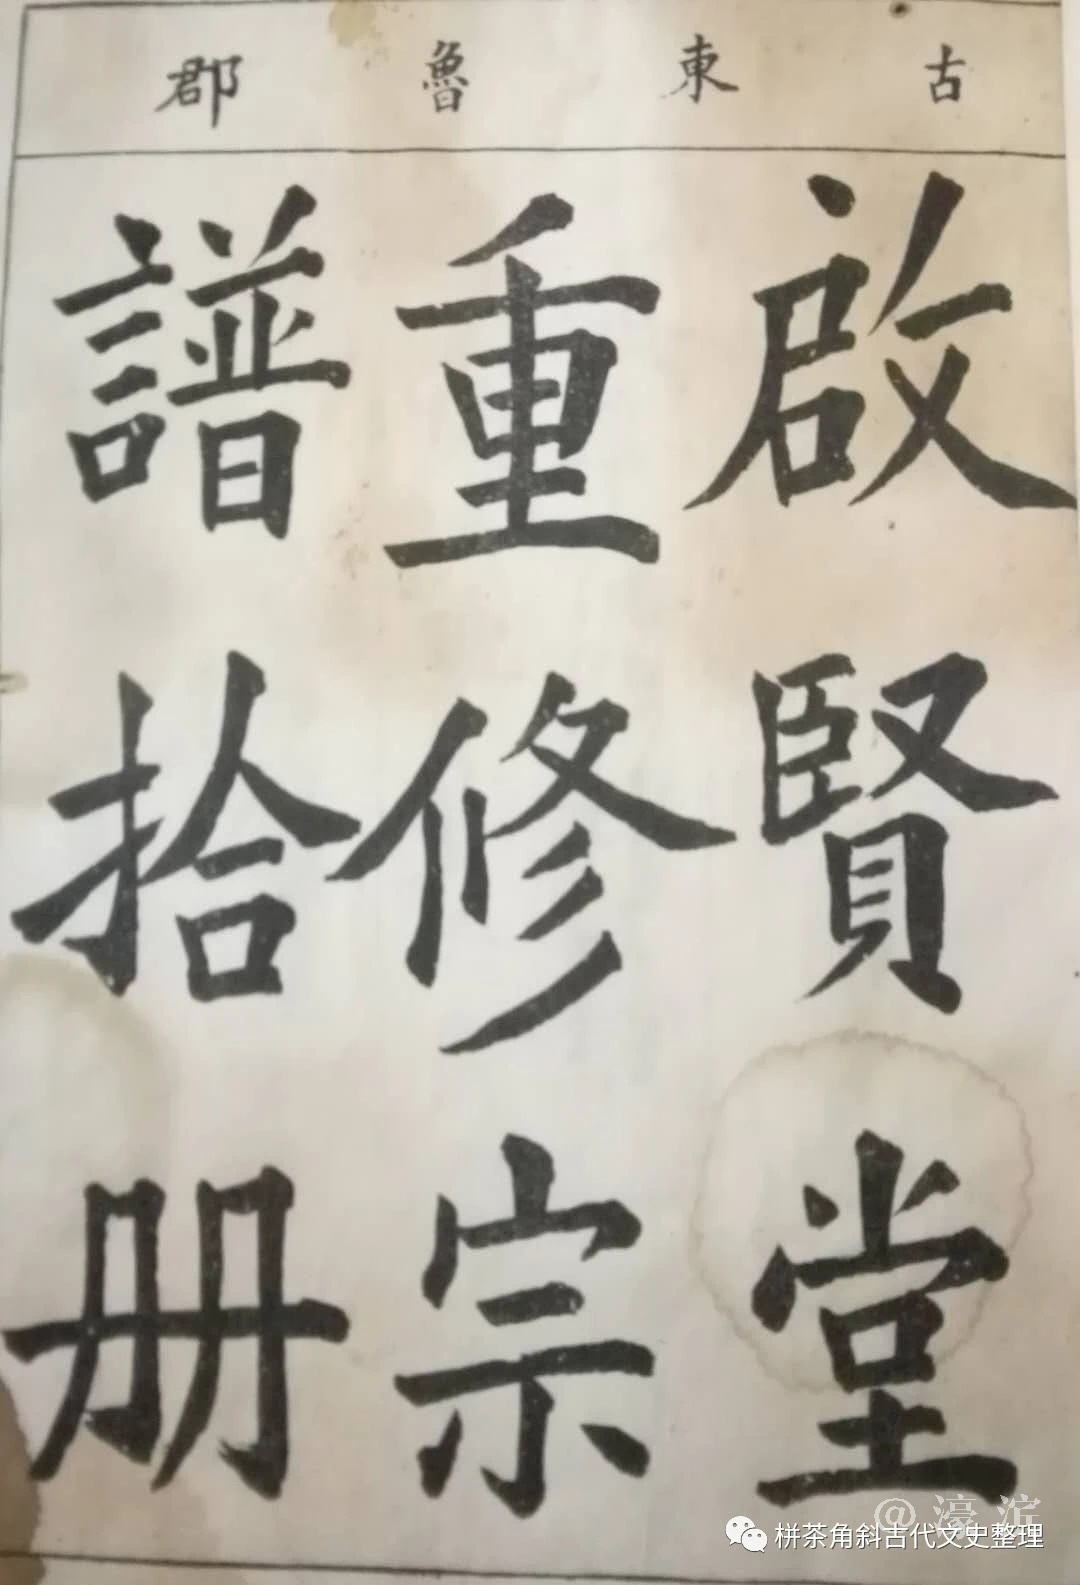 古東魯郡
啟賢堂
重修宗
譜拾册
@濠浜
栟茶角斜古代文史整理